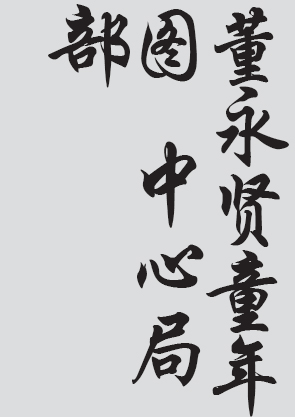 董永贤童年
图 中心局
部